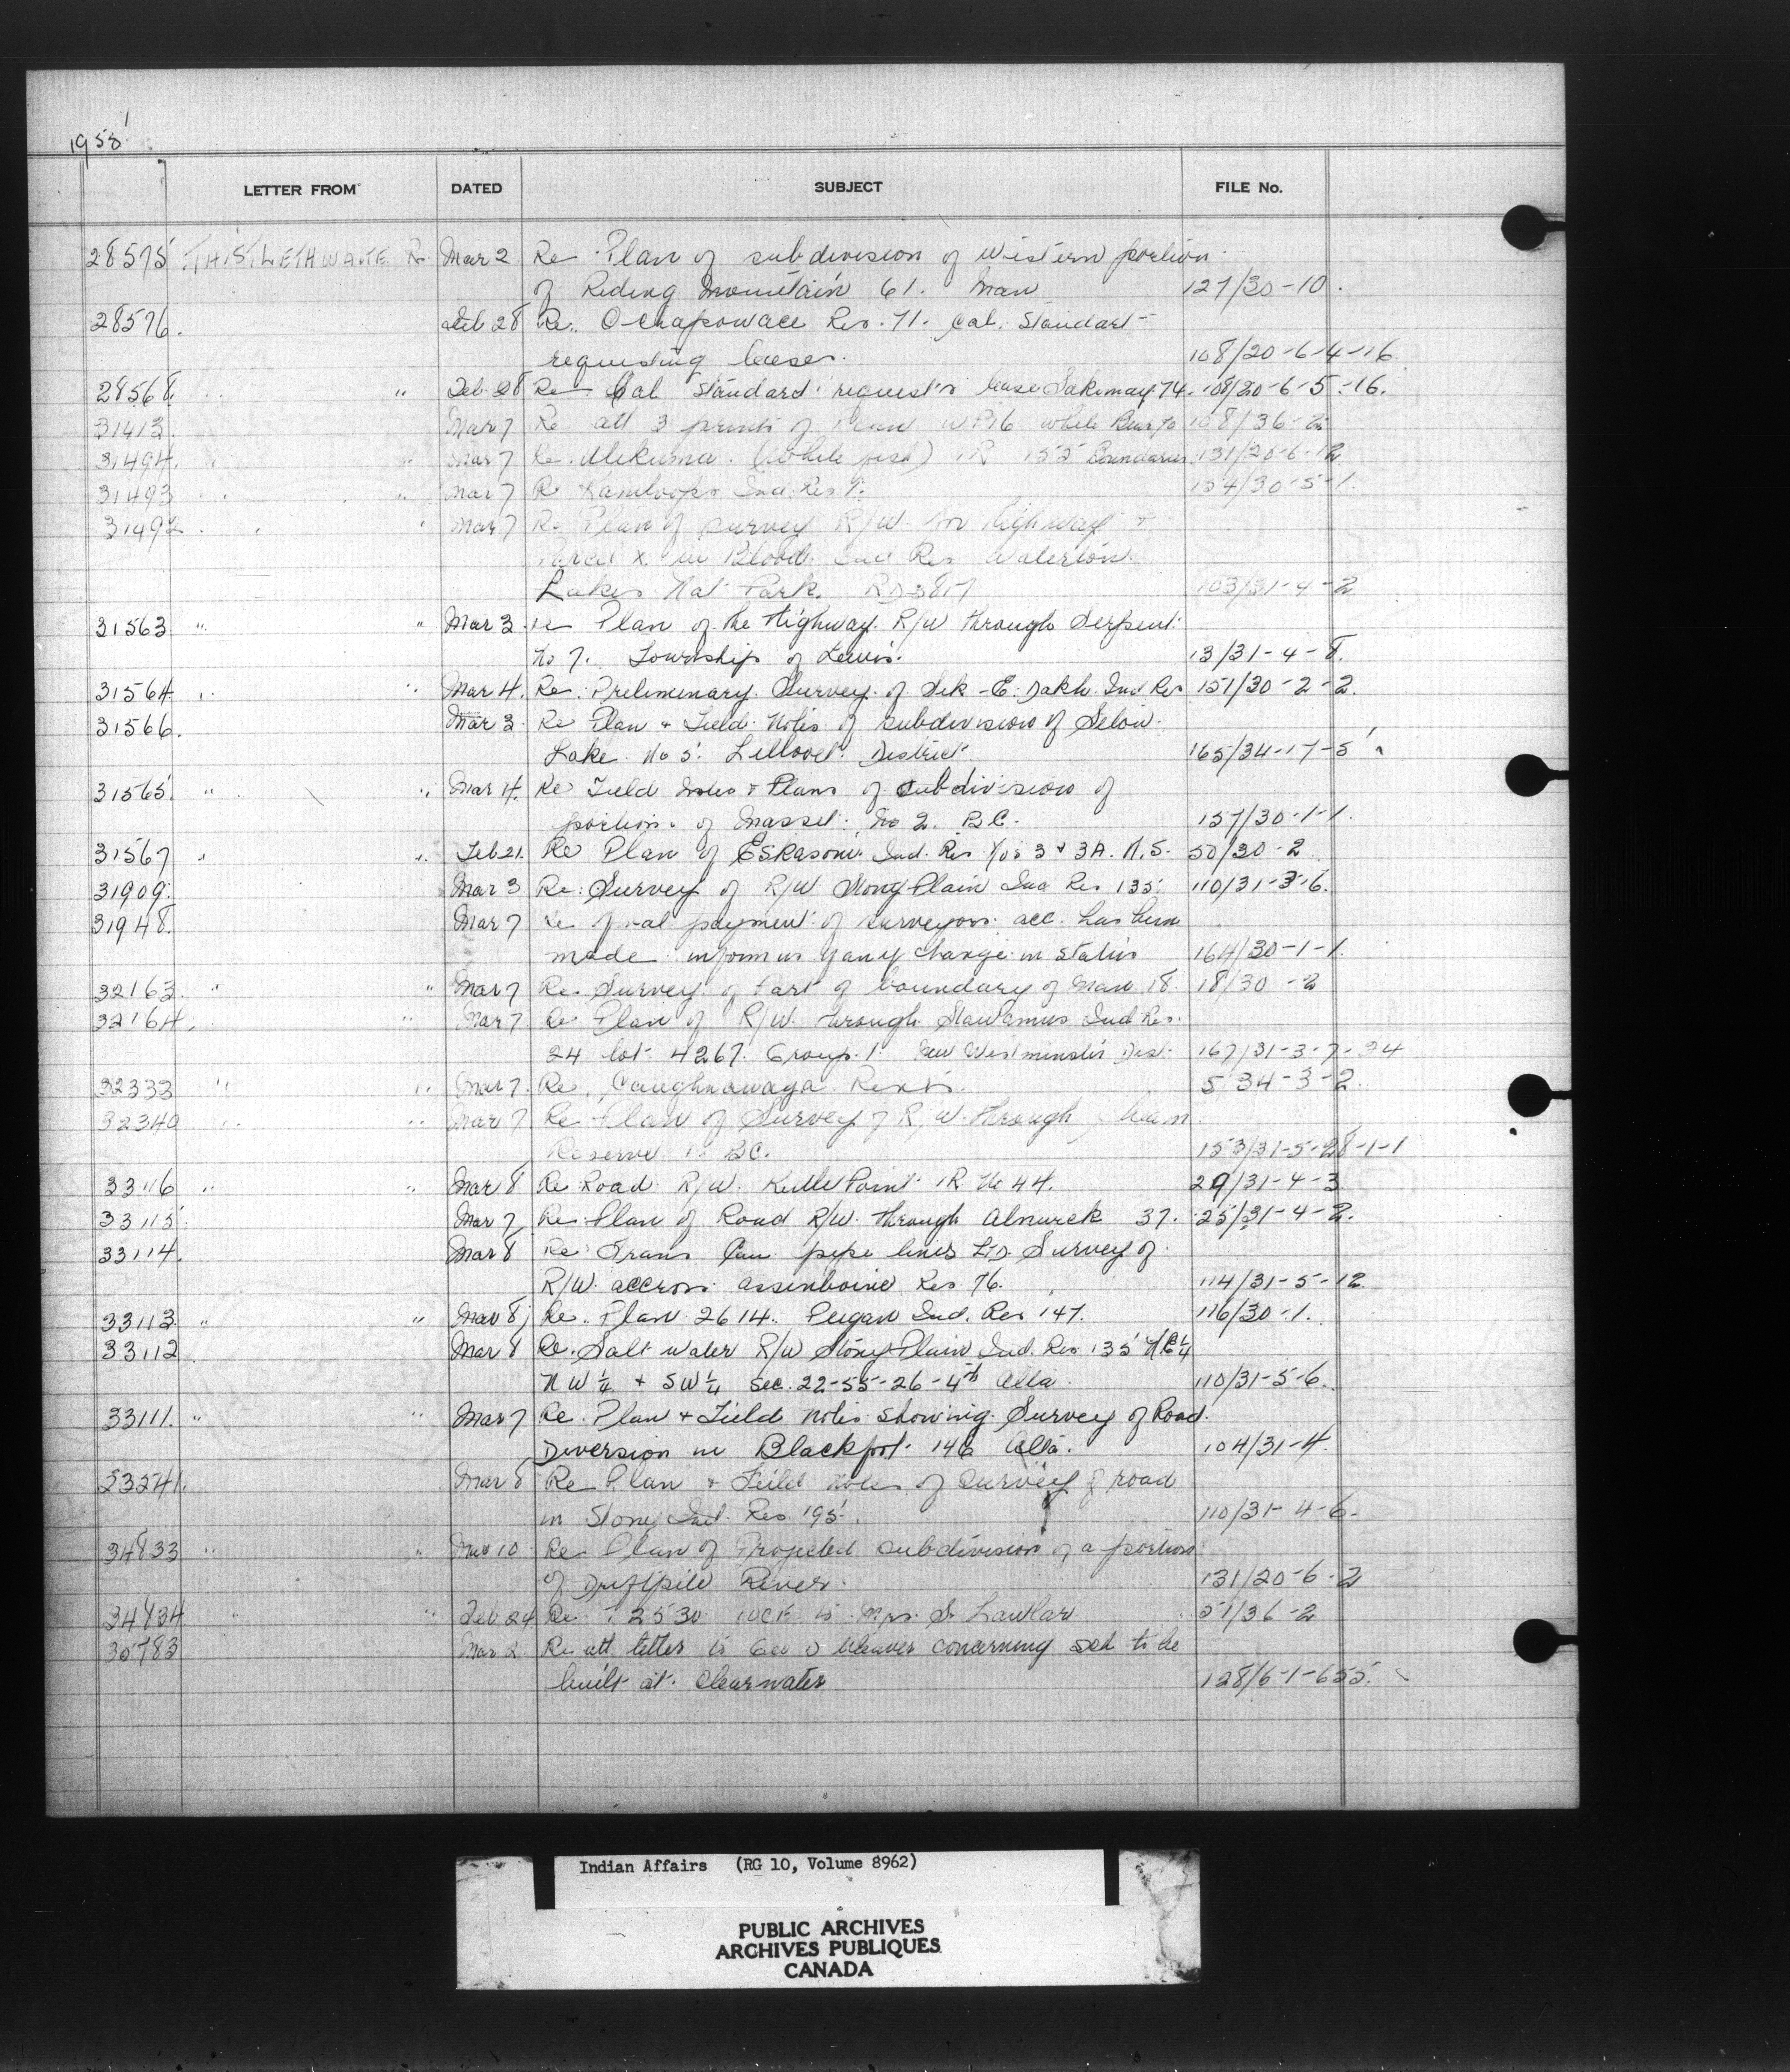 1958
LETTER FROM DATED SUBJECT FILE No.
28575 THISTLETHWAITE R. Mar 2 Re Plan of subdivision of Western portion
of Riding Mountain 61. Man 127/30-10.
28576. Feb 28 Re. Ochapowace Res. 71. Cal. Standart
requesting leases. 108/20-6-4-16
28568. " Feb 28 Re Cal Standard requests lease Sakimay 74. 108/20-6-5-16.
31413. Mar 7 Re att 3 prints of Plan White Bear 70 108/36-2
31494. " Mar 7 Re. Utikuma (White fish) IR 155 Boundaries 131/20-6-12
31493 " Mar 7 Re Kamloops Ind. Res 1. 154/30-5-1.
31492. " Mar 7 Re Plan of survey R/W for highway +
Parcel X in Blood Ind Res Waterton
Lakes Nat Park. RD 3817 103/31-4-2
31563 " " Mar 3 re Plan of the Highway R/W through Serpent
No 7. Township of Lewis. 13/31-4-8.
31564 " " Mar 4. Re. Preliminary Survey of Sik-E-Dakh Ind Res 151/30-2-2.
31566. Mar 3 Re Plan + Field Notes of subdivision of Seton
Lake No 5. Lillooet District 165/34-17-5
31565. " " Mar 4. Re Field notes + Plans of subdivision of
portion of Masset No 2. B.C. 157/30-1-1.
31567 " " Feb 21. Re Plan of Eskasoni Ind. Res Nos 3 + 3A. N.S. 50/30-2
31909. Mar 3 Re: Survey of R/W Stony Plain Ind Res 135. 110/31-3-6.
31948. Mar 7 Re final payment of surveyors acc. has been
made inform us of any change in status 164/30-1-1.
32163. " " Mar 7 Re. Survey of Part of boundary of 18. 18/30-2
32164. " Mar 7 Re Plan of R/W through Stawamus Ind Res.
24 lot 4267. Group 1. New Westminster Dist. 167/31-3-7-24
32333 " " Mar 7. Re. Caughnawaga 5 34-3-2.
32340 " " Mar 7 Re Plan of Survey of R/W through
Reserve 1. B.C. 153/31-5-28-1-1
33116 " " Mar 8 Re Road R/W. Kettle Point IR No 44. 29/31-4-3
33115. Mar 7, Re Plan of Road R/W. through Alnwick 37. 25/31-4-2.
33114. Mar 8 Re Trans Can pipe lines Ltd. Survey of
R/W. accross assinboine Res 76. 114/31-5-12
33113. " " Mar 8, Re. Plan 2614. Peigan Ind. Res 147. 116/30-1.
33112 Mar 8 Re. Salt water R/W Stony Plain Ind. Res 135 NE¼
NW¼ + SW¼ Sec. 22-55-26-4th Alta. 110/31-5-6.
33111. " " Mar 7 Re. Plan + Field notes showing Survey of Road
Diversion in Blackfoot 146 Alta. 104/31-4.
33241. Mar 8 Re Plan + Field notes of Survey of road
in Stony Ind. Res 195. 110/31-4-6.
34833 " " Mar 10 Re Plan of Projected subdivision of a portion
of Driftpile River. 131/20-6-2
34834 " " Feb 24 Re P2530 to Mrs. S. Lawlar 51/36-2
35783 Mar 2. Re att letter to Geo Weaver concerning sch to be
built at Clearwater 128/6-1-655.
Indian Affairs (RG 10, Volume 8962)
PUBLIC ARCHIVES
ARCHIVES PUBLIQUES
CANADA